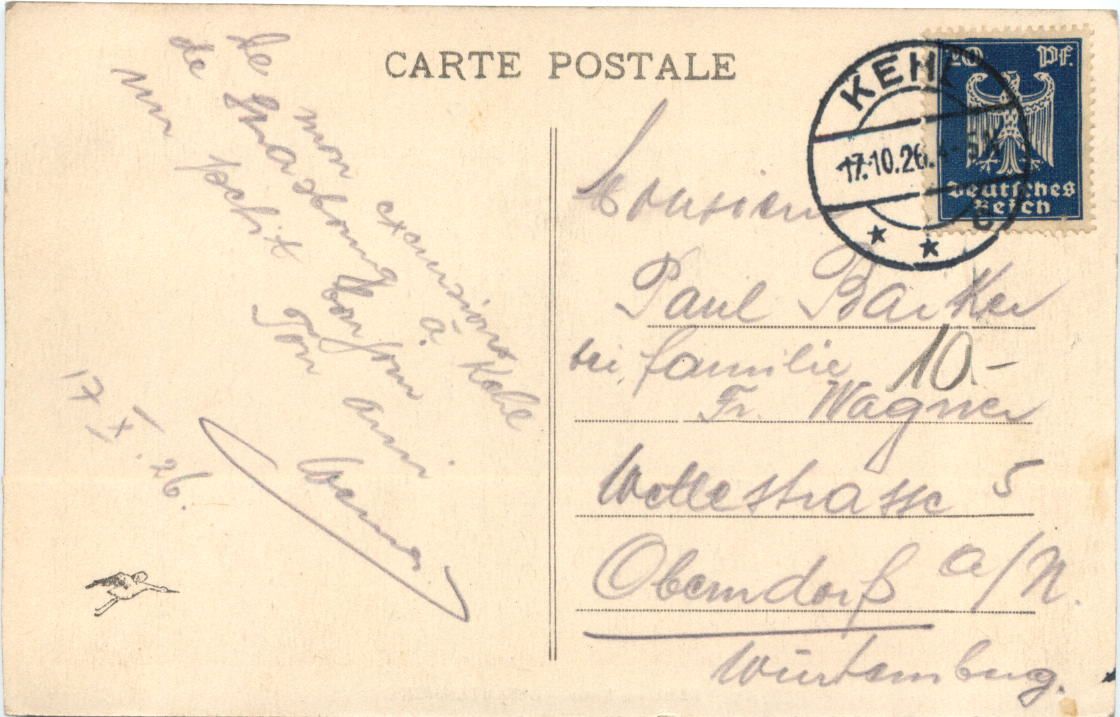 CARTE POSTALE
De mon excursions
de Strasbourg à Kehl
un petit bonjour
Ton ami
Werner
17 X. 26.
KEHL
17.10.26. 4-5N
c
20 Pf.
Deutsches
Reich
Monsieur
Paul Barker
bei familie
10.-
Fr. Wagner
strasse 5
Oberndorf a/N.
Würtemberg.